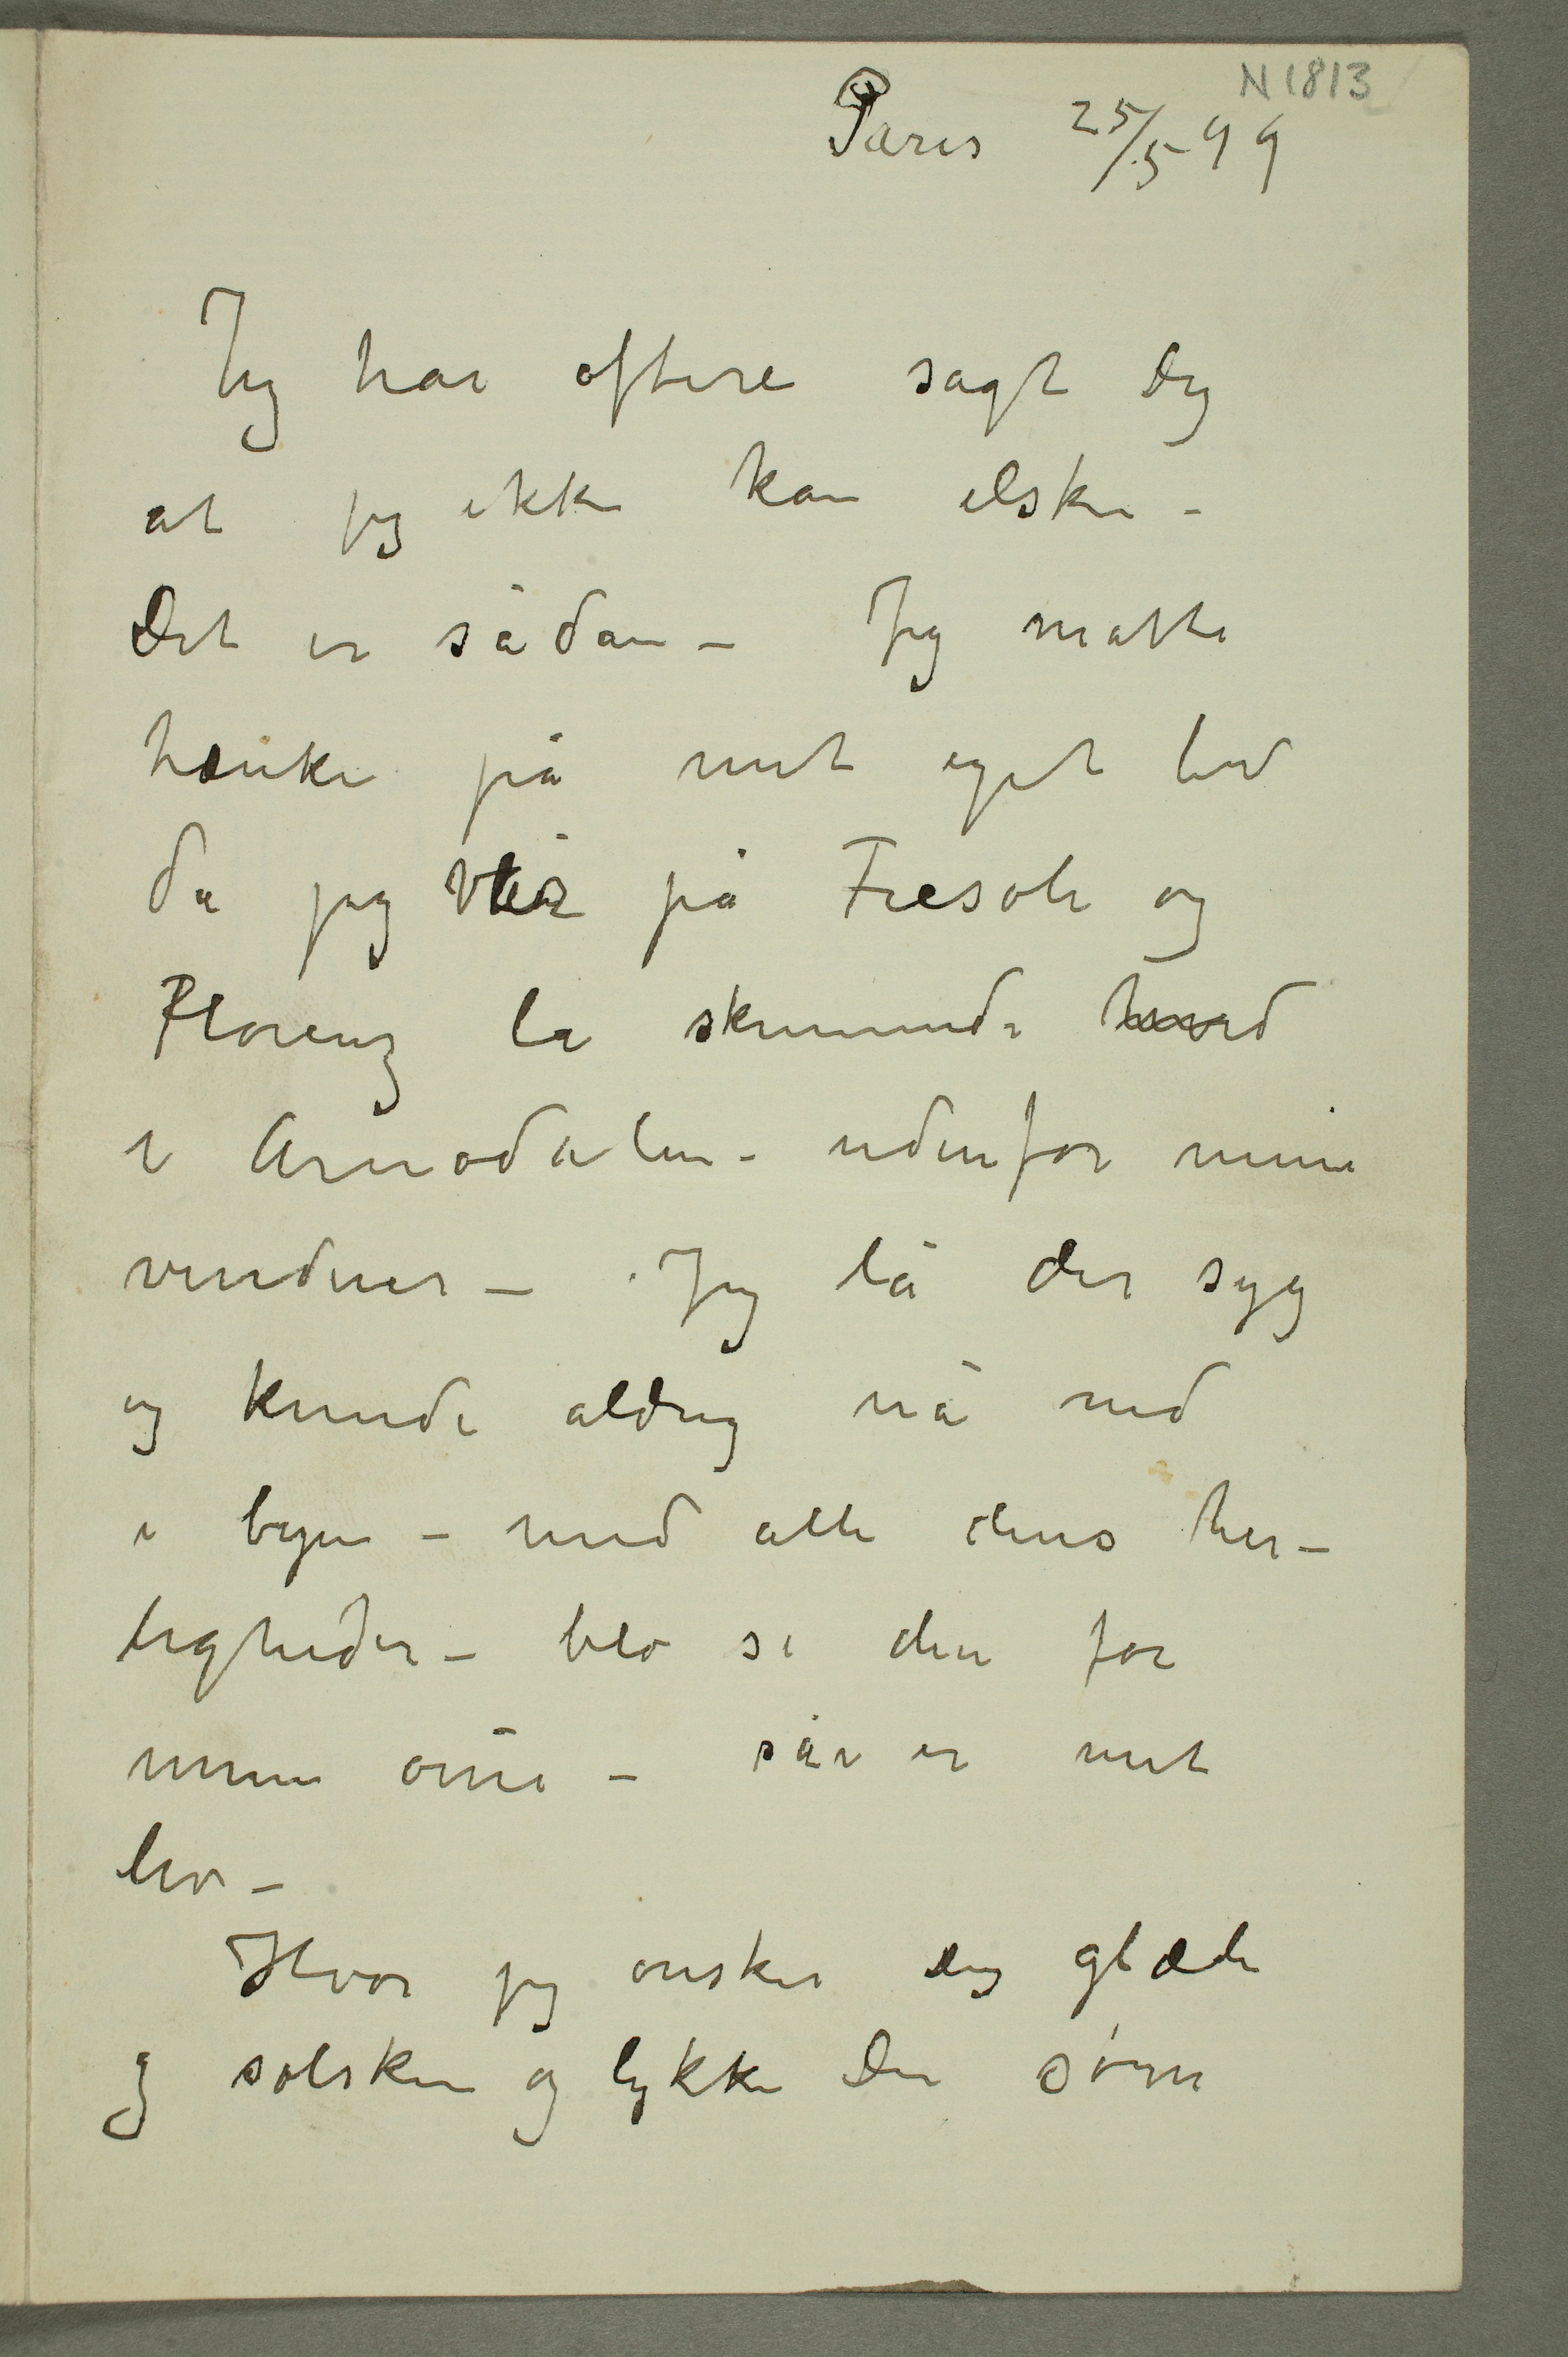 N 1813
Paris 25/5 99
Jeg har oftere sagt dig
at jeg ikke kan elske –
Det er sådan – Jeg måtte
tænke på mit eget liv
da jeg var på Fiesole og
Florenz lå skinnende hvid
i Arnodalen – udenfor mine
vinduer – Jeg lå der syg
og kunde aldrig nå ned
i byen – med alle dens her-
ligheder – blo se den for
mine øine – så er mit
liv –
Hvor jeg ønsker dig glæde
og solskin og lykke Du som